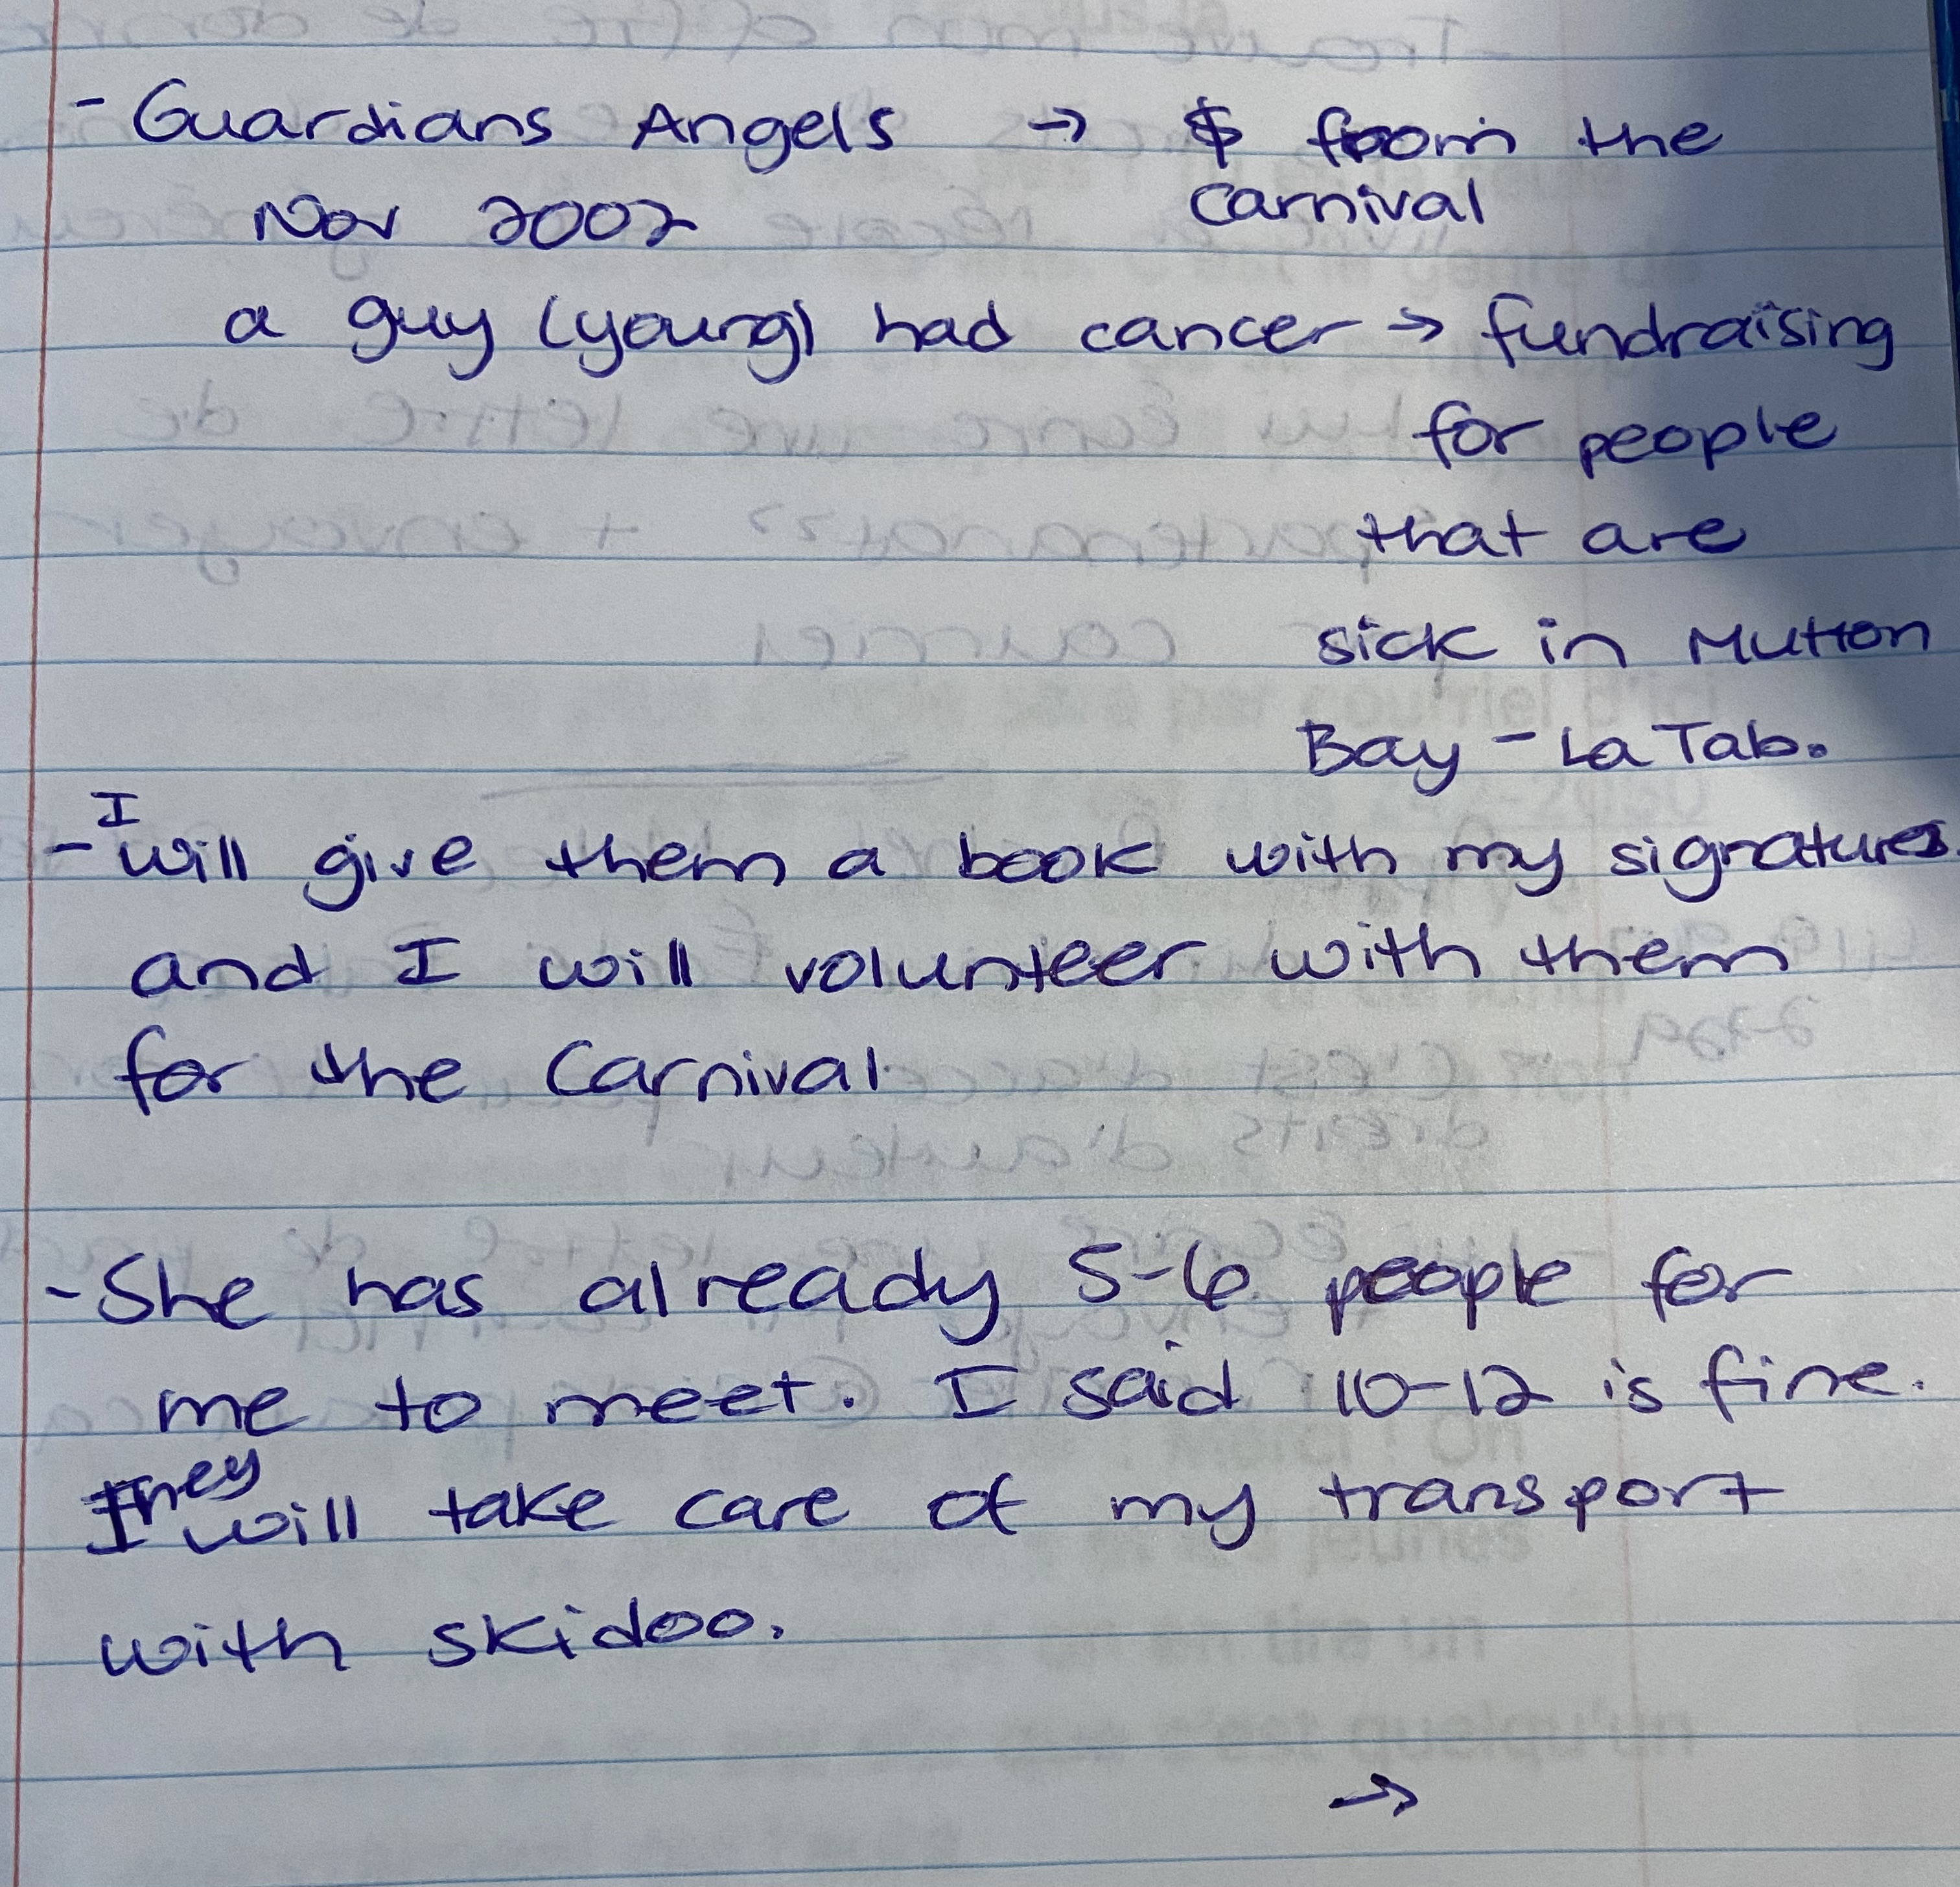 - Guardians Angels → $ from the
Carnival
Nov 2002
a guy (young) had cancer → fundraising
for people
that are
sick in Mutton
Bay - La Tab.
- I will give them a book with my signatures
and I will volunteer with them
for the Carnival
- She has already 5-6 people for
me to meet. I said 10-12 is fine.
They will take care of my transport
with skidoo.
→